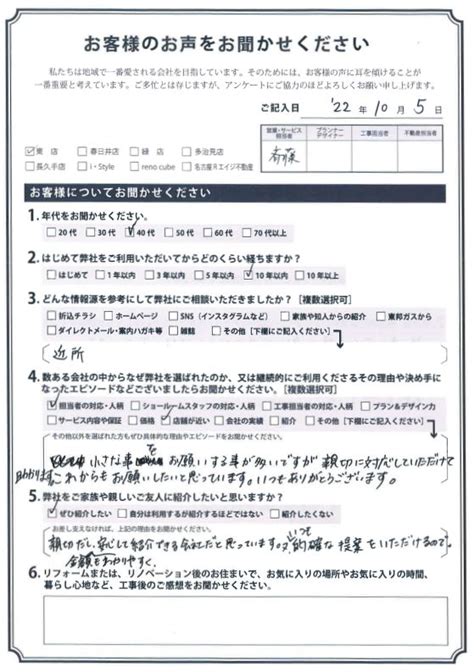 お客様のお声をお聞かせください
私たちは地域で一番愛される会社を目指しています。そのためには、お客様の声に耳を傾けることが
一番重要と考えています。ご多忙とは存じますが、アンケートにご協力のほどよろしくお願い申し上げます。
ご記入日 '22年10月5日
営業・サービス担当者 プランナーデザイナー 工事担当者 不動産担当者
斉藤
☑東店 □春日井店 □緑店 □多治見店
□長久手店 □i・Style □reno cube □名古屋Rエイジ不動産
お客様についてお聞かせください
1. 年代をお聞かせください。
□20代 □30代 ☑40代 □50代 □60代 □70代以上
2. はじめて弊社をご利用いただいてからどのくらい経ちますか?
□はじめて □1年以内 □3年以内 □5年以内 ☑10年以内 □10年以上
3. どんな情報源を参考にして弊社にご相談いただきましたか?[複数選択可]
□折込チラシ □ホームページ □SNS(インスタグラムなど) □家族や知人からの紹介 □東邦ガスから
□ダイレクトメール・案内ハガキ等 □雑誌 □その他[下欄にご記入ください]
近所
4. 数ある会社の中からなぜ弊社を選ばれたのか、又は継続的にご利用くださるその理由や決め手に
なったエピソードなどございましたらお聞かせください。[複数選択可]
☑担当者の対応・人柄 □ショールームスタッフの対応・人柄 □工事担当者の対応・人柄 □プラン&デザイン力
□サービス内容や保証 □価格 ☑店舗が近い □会社の実績 □紹介 □その他[下欄にご記入ください]
その他以外を選ばれた方もぜひ具体的な理由やエピソードをお聞かせください。
小さな事を お願いする事が多いですが 親切に対応していただけて
これからもお願いしたいと思っています。いつもありがとうございます。
5. 弊社をご家族や親しいご友人に紹介したいと思いますか?
☑ぜひ紹介したい □自分は利用するが紹介するほどではない □紹介したくない
お差し支えなければ、上記の理由をお聞かせください。
親切だし、安心して紹介できる会社だと思っています。いつも的確な提案をいただけるので。
金額もわかりやすく、
6. リフォームまたは、リノベーション後のお住まいで、お気に入りの場所やお気に入りの時間、
暮らし心地など、工事後のご感想をお聞かせください。